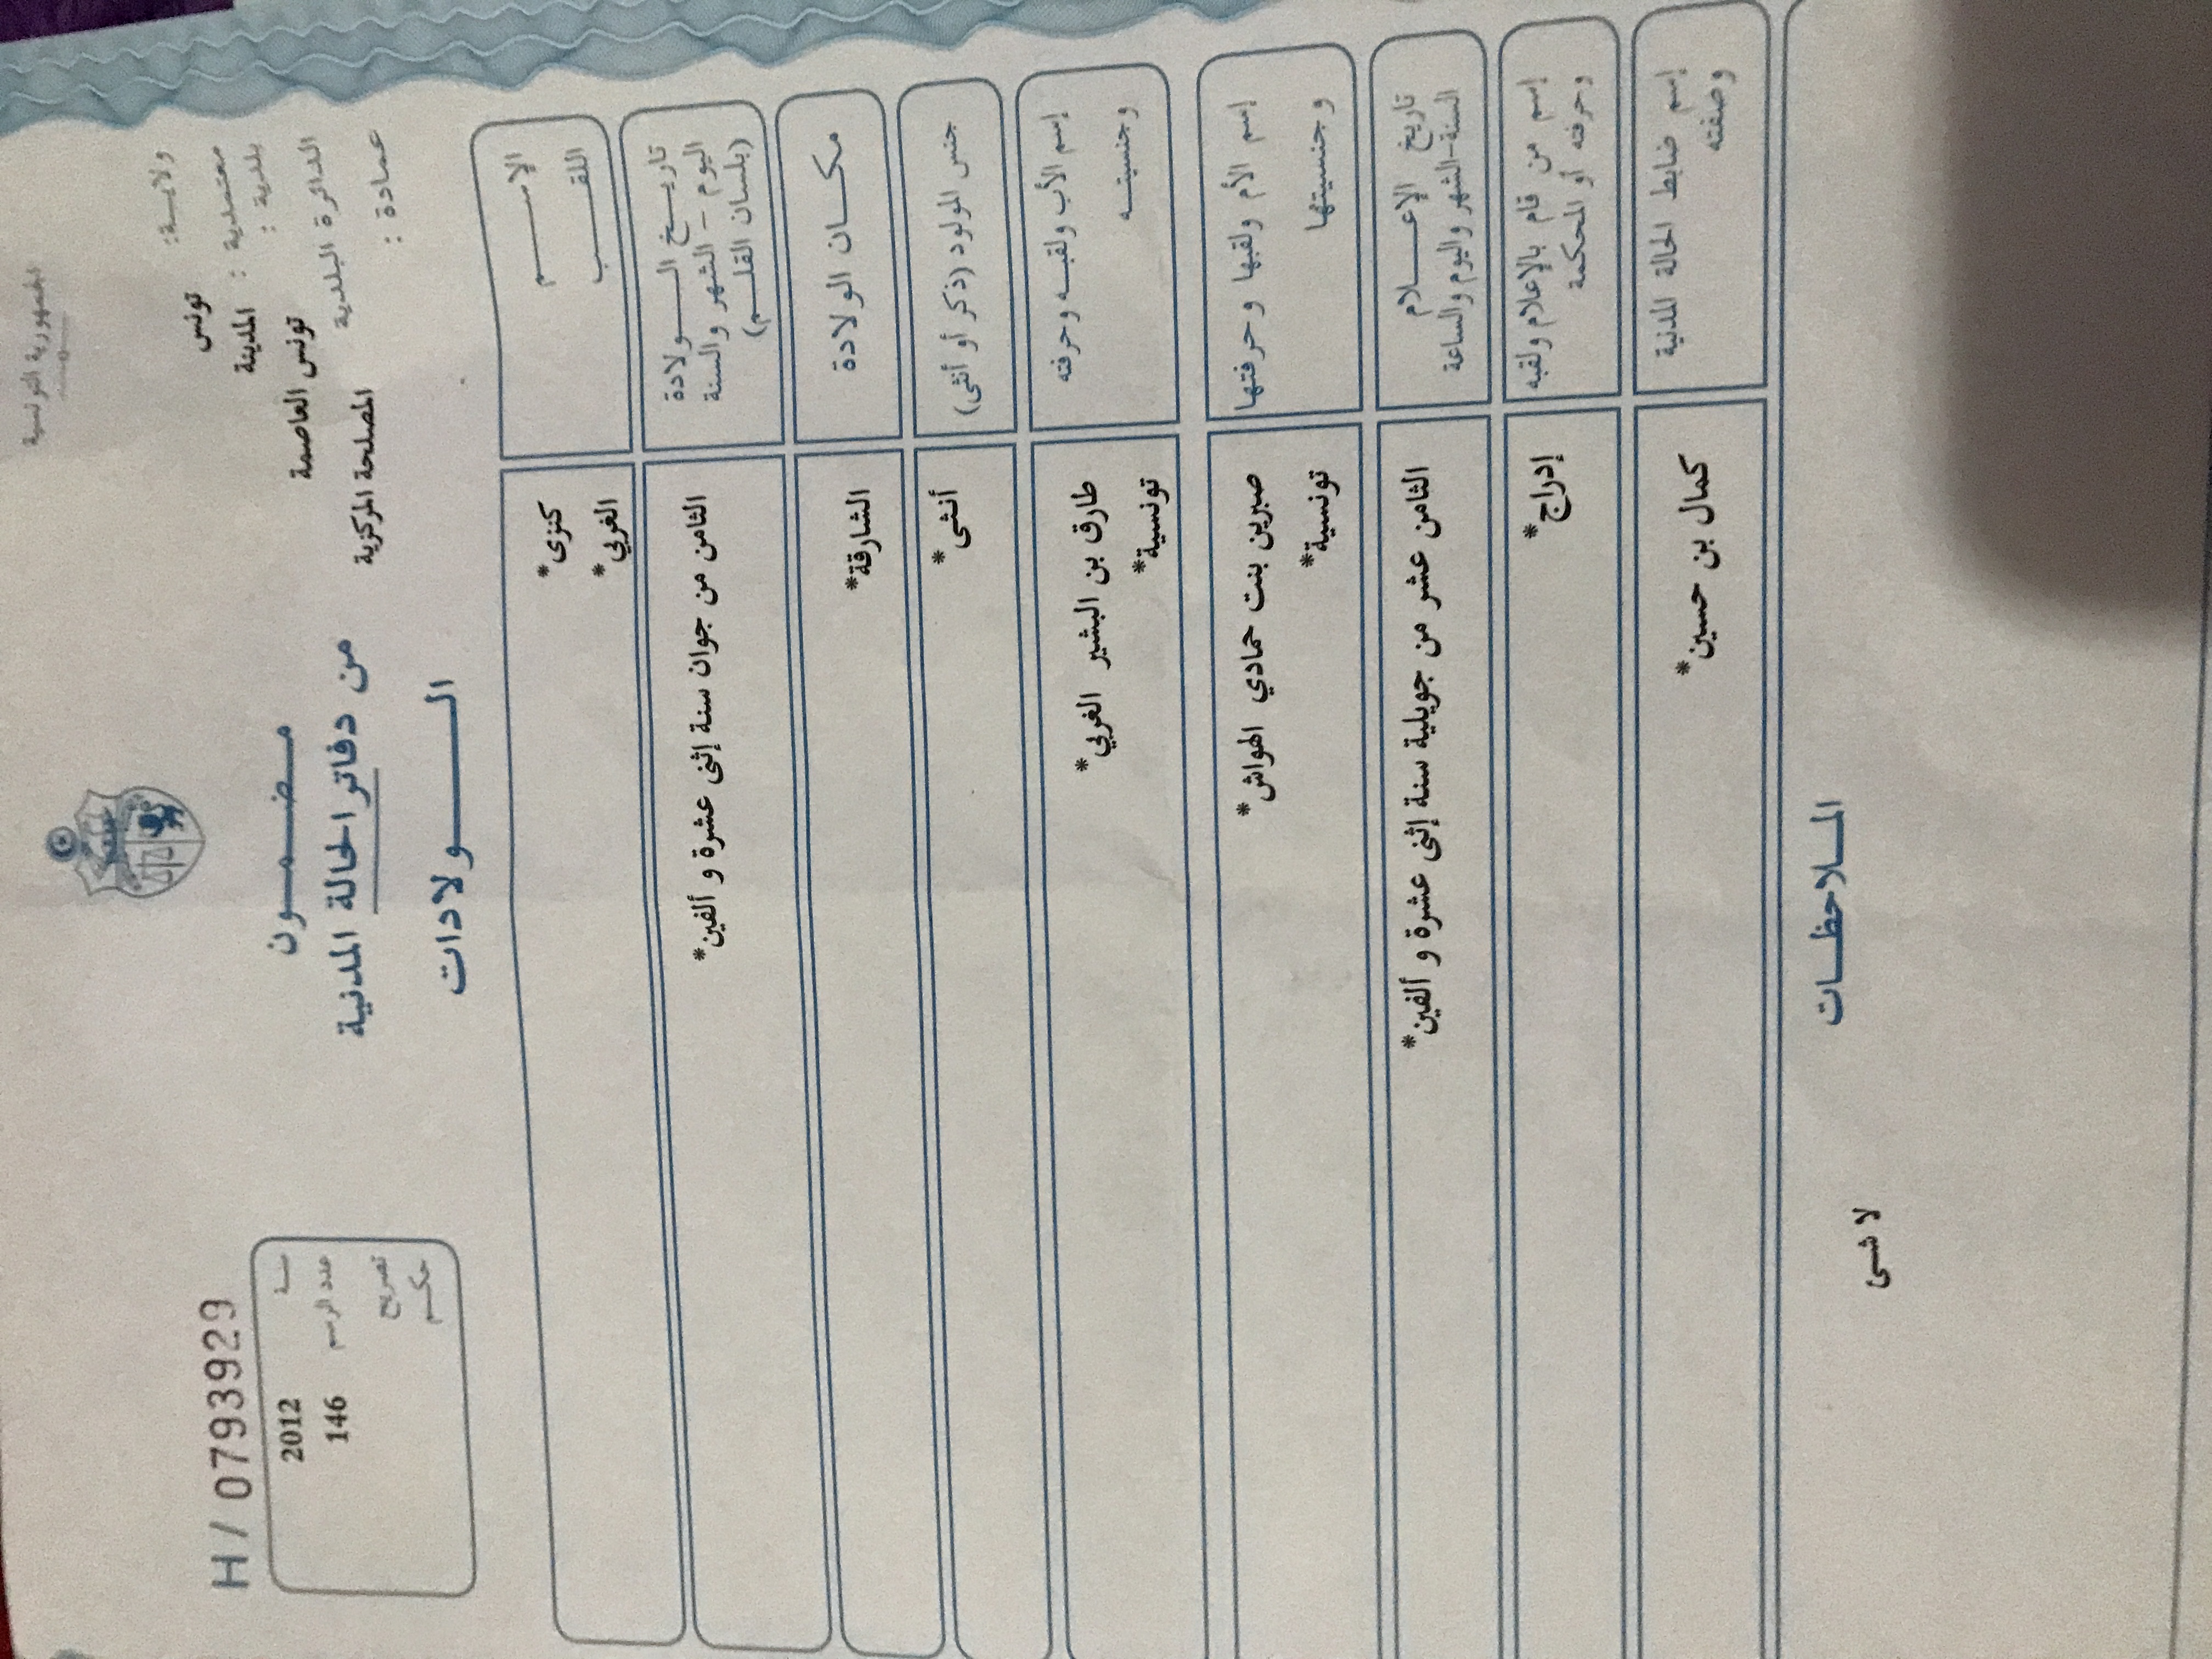 الجمهورية التونسية
ولاية: تونس
معتمدية: المدينة
بلدية: تونس العاصمة
الدائرة البلدية المصلحة المركزية
عمادة:
H / 0793929
سنة 2012
عدد الرسم 146
تصريح
حكم
مضمون
من دفاتر الحالة المدنية
الولادات
الإسم كنزى*
اللقب الغربي*
تاريخ الولادة
اليوم - الشهر والسنة
(بلسان القلم)
الثامن من جوان سنة إثنى عشرة و ألفين*
مكان الولادة الشارقة*
جنس المولود (ذكر أو أنثى) أنثى*
إسم الأب ولقبه وحرفته طارق بن البشير الغربي*
وجنسيته تونسية*
إسم الأم ولقبها وحرفتها صبرين بنت حمادي الهواش*
وجنسيتها تونسية*
تاريخ الإعلام
السنة-الشهر واليوم والساعة
الثامن عشر من جويلية سنة إثنى عشرة و ألفين*
إسم من قام بالإعلام ولقبه
وحرفته أو المحكمة
إدراج*
إسم ضابط الحالة المدنية
وصفته
كمال بن حسين*
الملاحظات
لا شىء